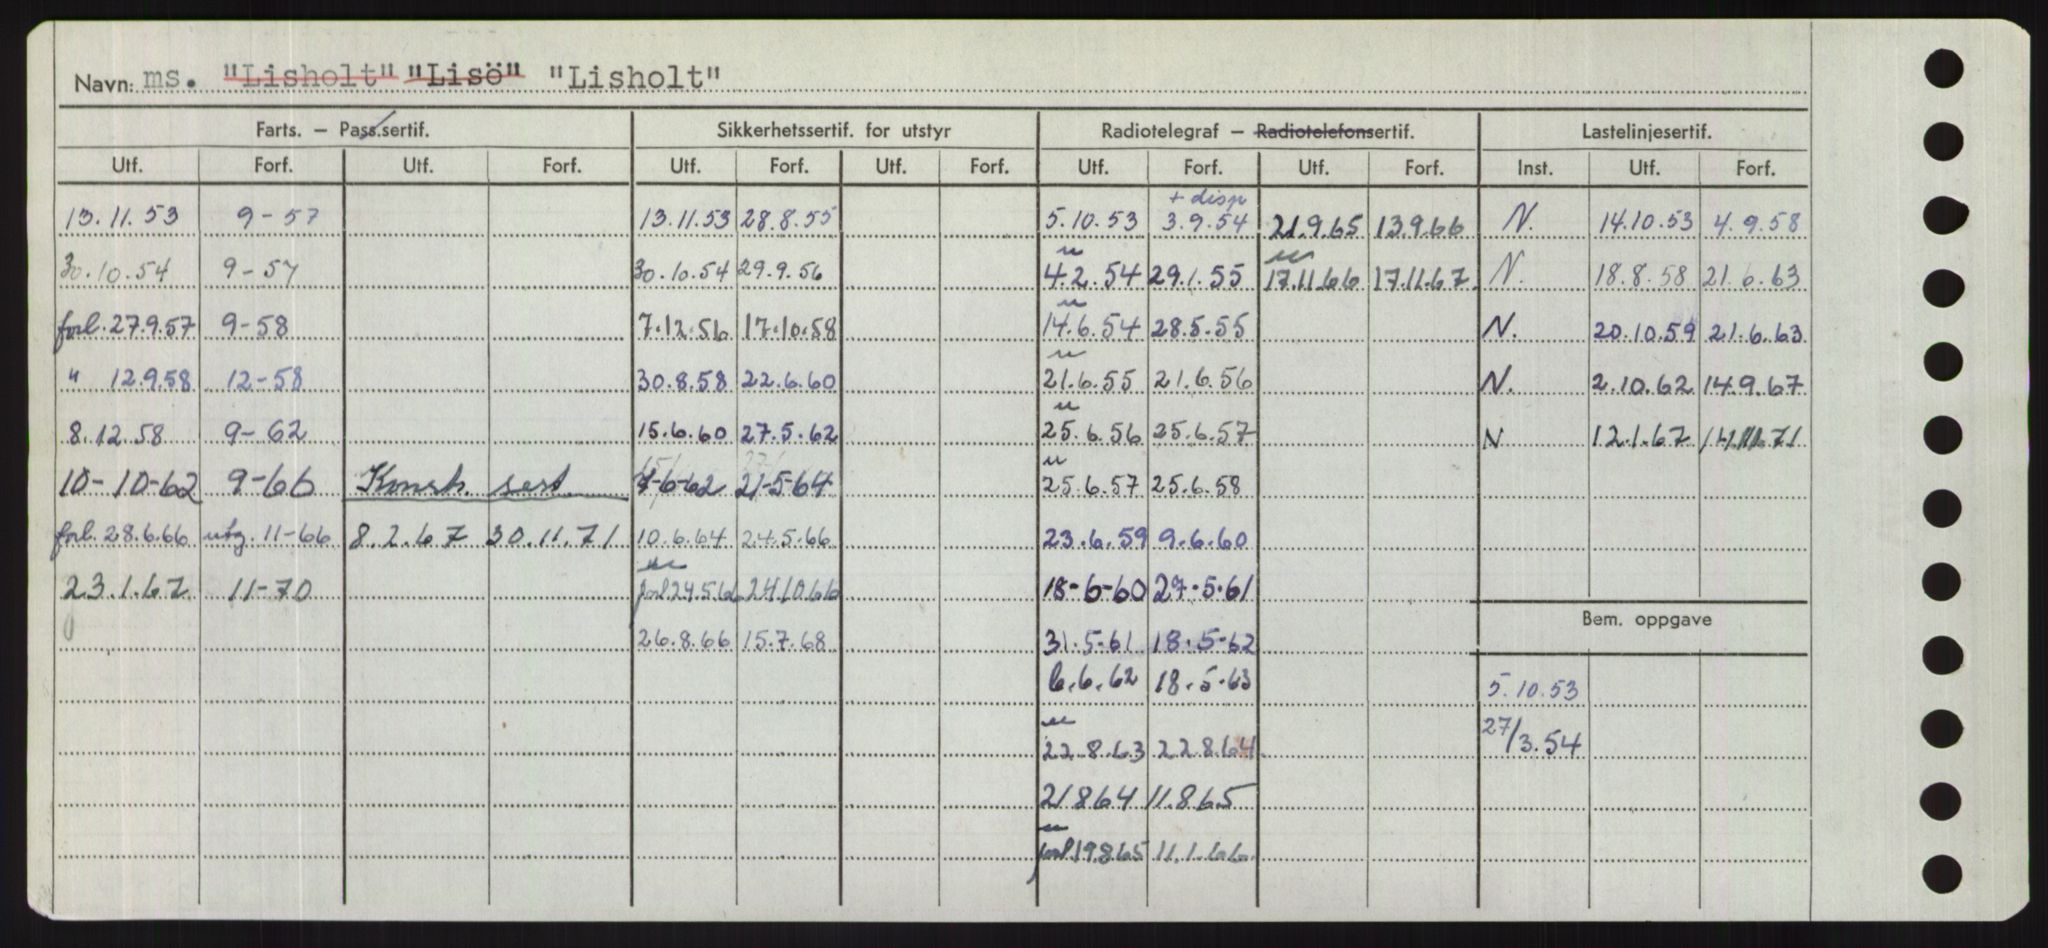 Navn: ms. "Lisholt" "Lisö" "Lisholt"
Farts. — Pass.sertif. Sikkerhetssertif. for utstyr Radiotelegraf — Radiotelefonsertif. Lastelinjesertif.
Utf. Forf. Utf. Forf. Utf. Forf. Utf. Forf. Utf. Forf. Utf. Forf. Inst. Utf. Forf.
+ disp
13.11.53 9-57 13.11.53 28.8.55 5.10.53 3.9.54 21.9.65 13.9.66 N. 14.10.53 4.9.58
30.10.54 9-57 30.10.54 29.9.56 4.2.54 29.1.55 17.11.66 17.11.67 N. 18.8.58 21.6.63
forl. 27.9.57 9-58 7.12.56 17.10.58 14.6.54 28.5.55 N. 20.10.59 21.6.63
" 12.9.58 12-58 30.8.58 22.6.60 21.6.55 21.6.56 N. 2.10.62 14.9.67
8.12.58 9-62 15.6.60 27.5.62 25.6.56 25.6.57 N 12.1.67
10-10-62 9-66 Konstr. sert. 6-62 21-5-64 25.6.57 25.6.58
forl. 28.6.66 utg. 11-66 8.2.67 30.11.71 10.6.64 24.5.66 23.6.59 9.6.60
23.1.67 11-70 forl 24.5.66 24.10.66 18-6-60 27.5.61
Bem. oppgave
26.8.66 15.7.68 31.5-61 18.5-62
6.6.62 18.5.63 5.10.53
22.8.63 22.8.64 27/3.54
21864 11.865
forl 19865 11.1.66